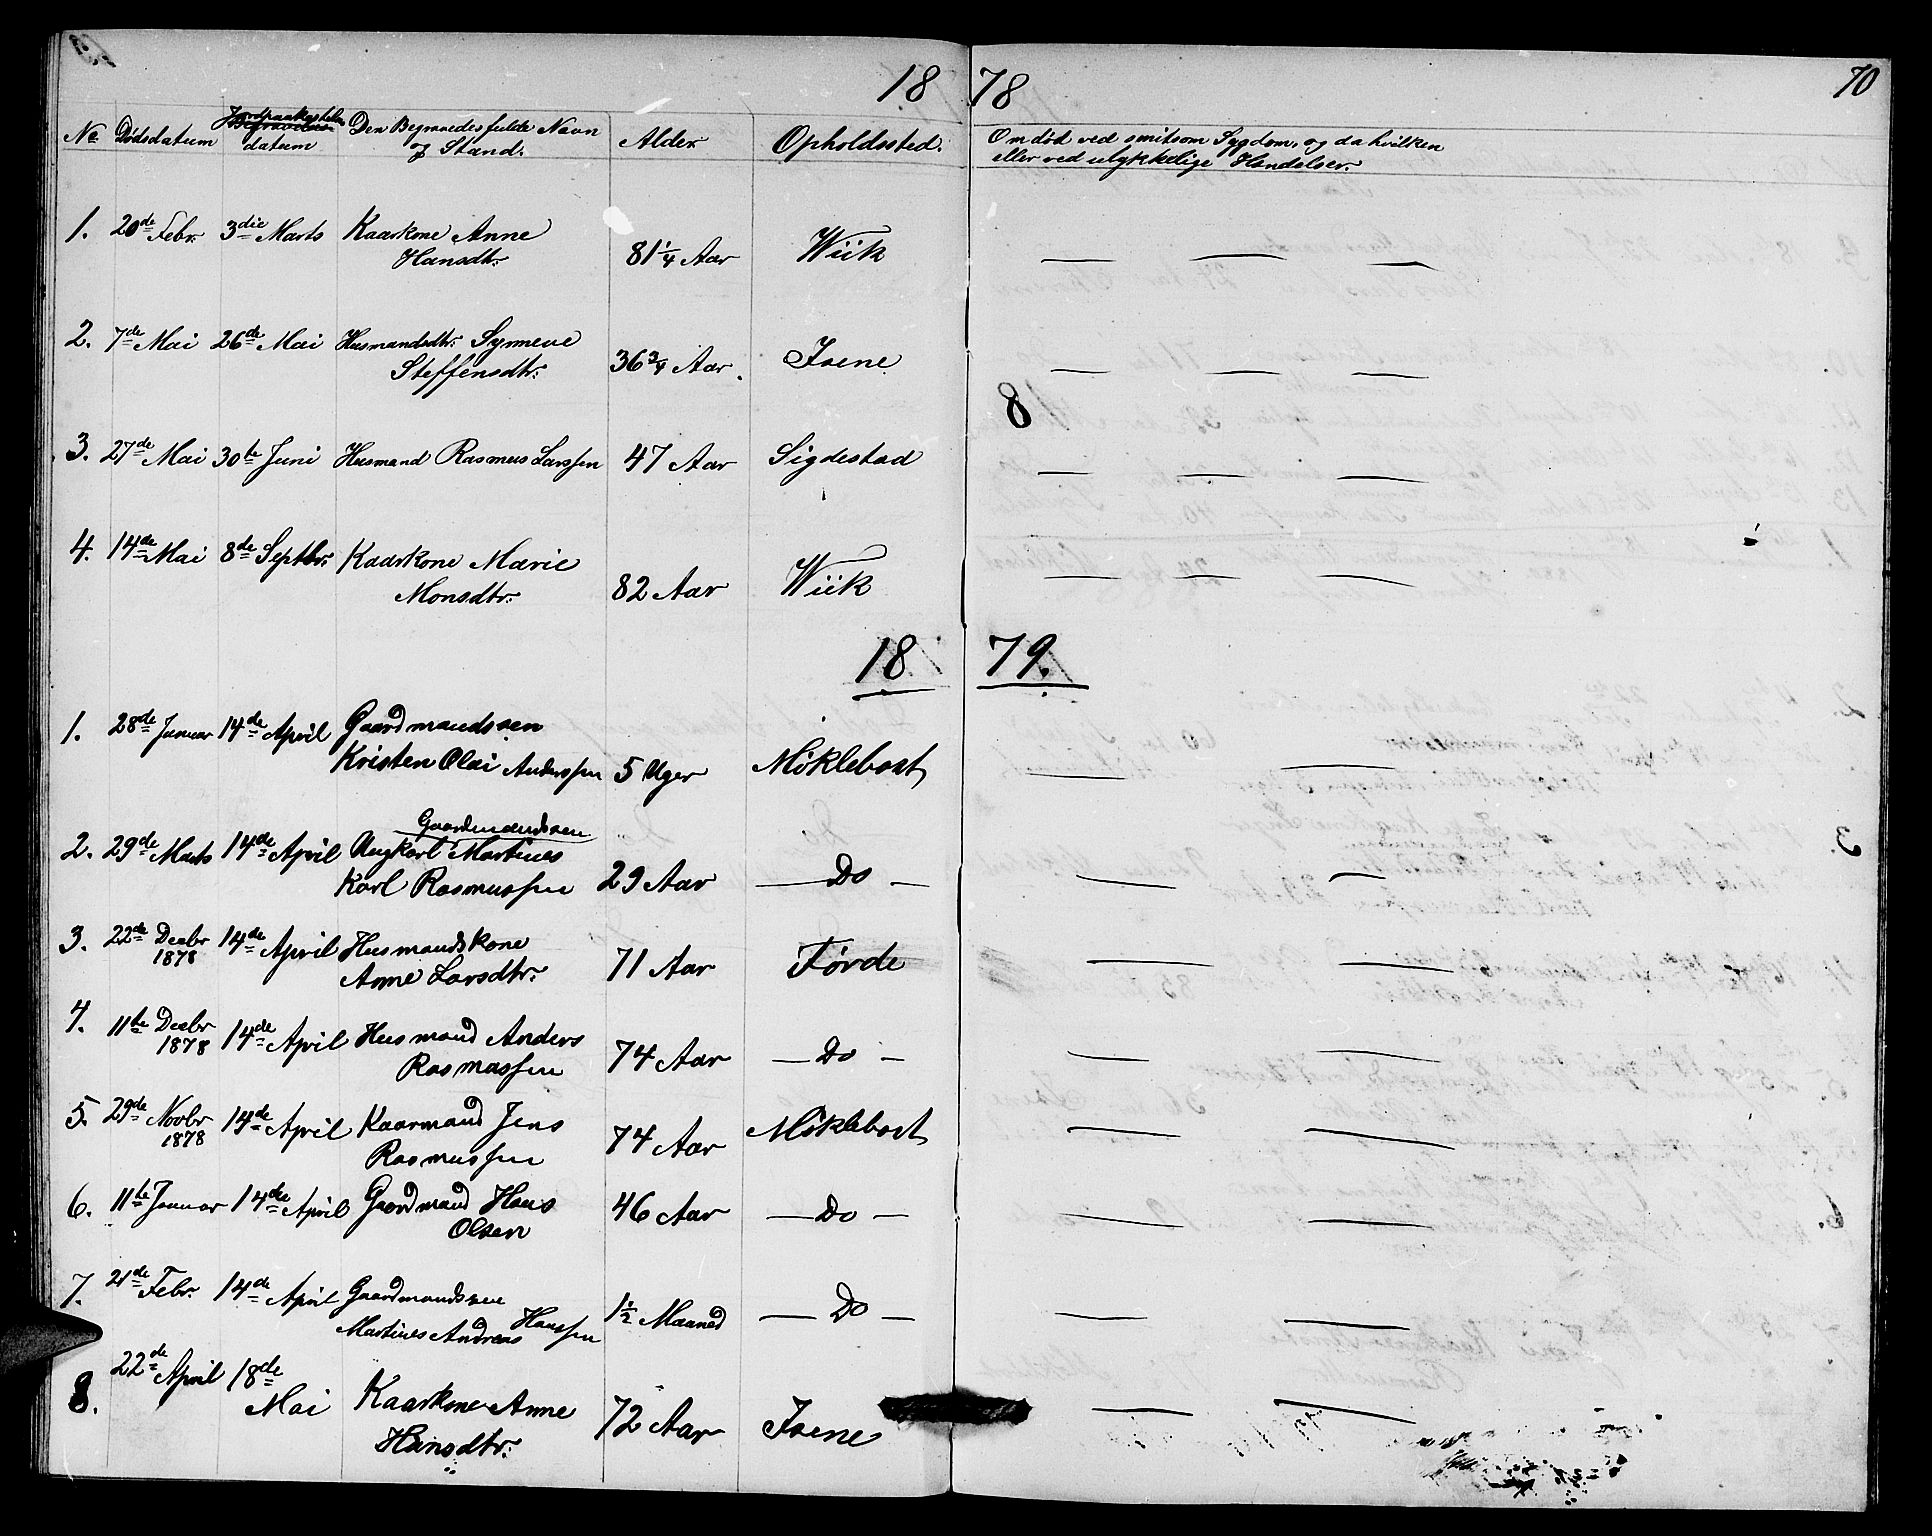 18 78 70
No Dødsdatum Jordpaakastelses datum Den Begravedes fulde Navn og Stand. Alder Opholdssted. Om død ved smitsom Sygdom, og da hvilken
eller ved ulykkelige Hændelser.
1. 20de Febr. 3die Marts Kaarkone Anne
Hansdtr. 81 1/4 Aar Wiik — — —
2. 7de Mai 26de Mai Husmandsdtr. Synneve
Steffensdtr. 36 3/4 Aar Isene — — —
8
3. 27de Mai 30te Juni Husmand Rasmus Larssen 47 Aar Sigdestad — — —
4. 14de Mai 8de Septbr. Kaarkone Marie
Monsdtr. 82 Aar Wiik — — —
18 79.
1. 28de Januar 14de April Gaardmandssøn
Kristen Olai Anderssen 5 Uger Myklebost — —
2. 29de Marts 14de April Gaardmandssøn
Ungkarl Martinus
Karl Rasmussen 29 Aar — Do — — —
3. 22de Decbr 1878 14de April Husmandskone
Anne Larsdtr. 71 Aar Førde — —
4. 11te Decbr 1878 14de April Husmand Anders
Rasmussen 74 Aar — Do — — —
5. 29de Novbr 1878 14de April Kaarmand Jens
Rasmussen 74 Aar Myklebost — —
6. 11te Januar 14de April Gaardmand Hans
Olsen 46 Aar — Do — — —
7. 21de Febr. 14de April Gaardmandssøn
Martinus Andreas Hanssen 1 1/2 Maaned — Do — — —
8. 22de April 18de Mai Kaarkone Anne
Hansdtr. 72 Aar Isene — —